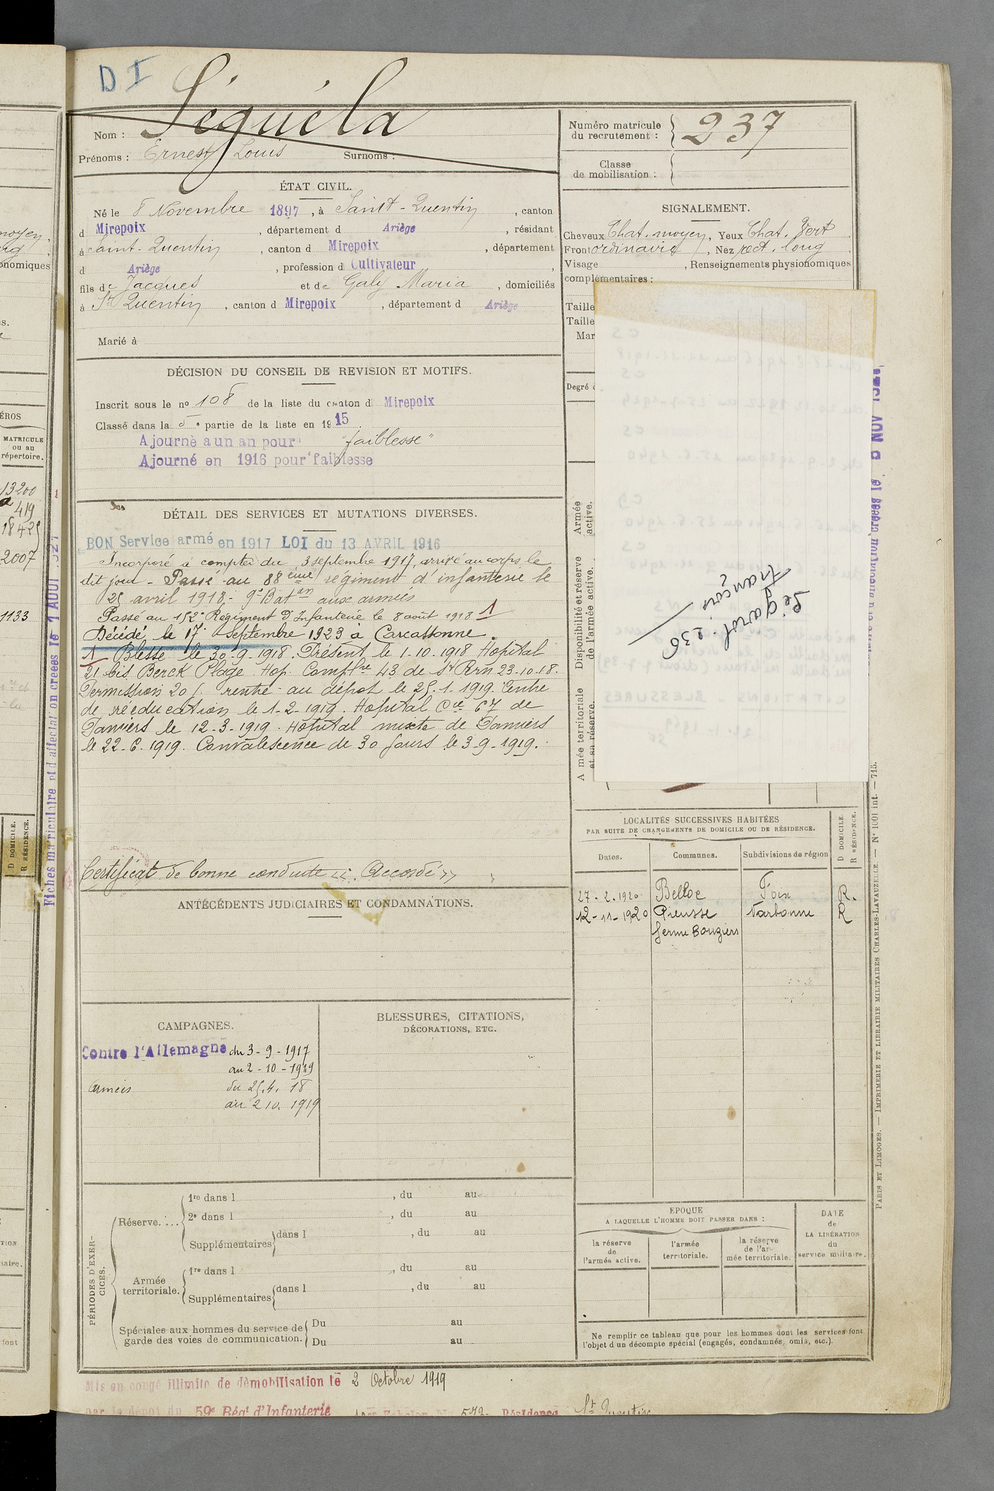 D I
Séguéla
Nom :
Prénoms : Ernest Louis Surnoms :
Numéro matricule du recrutement : 237
Classe de mobilisation :
ÉTAT CIVIL.
Né le 8 Novembre 1897, à Saint-Quentin, canton
d Mirepoix, département d Ariège, résidant
à Saint-Quentin, canton d Mirepoix, département
d Ariège, profession d Cultivateur,
fils de Jacques et de Galy Maria, domiciliés
à St Quentin, canton d Mirepoix, département d Ariège
Marié à
SIGNALEMENT.
Cheveux Chat. moyen, Yeux Chat. vert
Front ordinaire, Nez rect. long
Visage , Renseignements physionomiques
complémentaires :
Taille
Taille
Mar
Degré
DÉCISION DU CONSEIL DE REVISION ET MOTIFS.
Inscrit sous le no 108 de la liste du canton d Mirepoix
Classé dans la 5e partie de la liste en 1915
Ajourné a un an pour "faiblesse"
Ajourné en 1916 pour faiblesse
DÉTAIL DES SERVICES ET MUTATIONS DIVERSES.
BON Service armé en 1917 LOI du 13 AVRIL 1916
Incorporé à compter du 3 septembre 1917, arrivé au corps le
dit jour - Passé au 88ème régiment d'infanterie le
25 avril 1918 - 9e Batan aux armées
Passé au 152e Régiment D'Infanterie le 8 août 1918 1
Décédé le 17 septembre 1923 à Carcassonne.
1 Blessé le 30-9-1918. Présent le 1-10-1918 Hopital
21 bis Berck Plage. Hop. Compltre 43 de St Rm 23-10-18.
Permission 20 j. rentré au dépot le 25-1-1919. Centre
de rééducation le 1-2-1919. Hopital Cre 67 de
Pamiers le 12-3-1919. Hopital mixte de Pamiers
le 22-6-1919. Convalescence de 30 jours le 3-9-1919.
Certificat de bonne conduite "Accordé"
Ségarol : 236
François
Armée active.
Disponibilité et réserve de l'armée active.
Armée territoriale et sa réserve.
LOCALITÉS SUCCESSIVES HABITÉES
PAR SUITE DE CHANGEMENTS DE DOMICILE OU DE RÉSIDENCE.
Dates. Communes. Subdivisions de région D DOMICILE. R RÉSIDENCE.
27-2-1920 Belloc Foix R.
12-11-1920 Pieusse Narbonne R
ferme
ANTÉCÉDENTS JUDICIAIRES ET CONDAMNATIONS.
CAMPAGNES.
Contre l'Allemagne du 3-9-1917
au 2-10-1919
armées du 25.4.18
au 2 10. 1919
BLESSURES, CITATIONS,
DÉCORATIONS, ETC.
PÉRIODES D'EXERCICES.
Réserve. 1re dans l , du au
2e dans l , du au
Supplémentaires dans l , du au
Armée territoriale. 1re dans l , du au
Supplémentaires dans l , du au
Spéciales aux hommes du service de garde des voies de communication. Du au
Du au
EPOQUE
A LAQUELLE L'HOMME DOIT PASSER DANS :
la réserve de l'armée active. l'armée territoriale. la réserve de l'armée territoriale.
DATE de LA LIBÉRATION du service militaire.
Ne remplir ce tableau que pour les hommes dont les services font
l'objet d'un décompte spécial (engagés, condamnés, omis, etc.).
Mis en congé illimité de démobilisation le 2 Octobre 1919
par le dépôt du 59e Régt d'Infanterie Résidence St Quentin
PARIS ET LIMOGES. — IMPRIMERIE ET LIBRAIRIE MILITAIRES CHARLES-LAVAUZELLE. — No 1001 int. — 715.
Fiches matriculaire et d'affectation créées le 7 AOUT 1921
MATRICULE
ou au
répertoire.
13200
419
2007
1133
D DOMICILE.
R RÉSIDENCE.